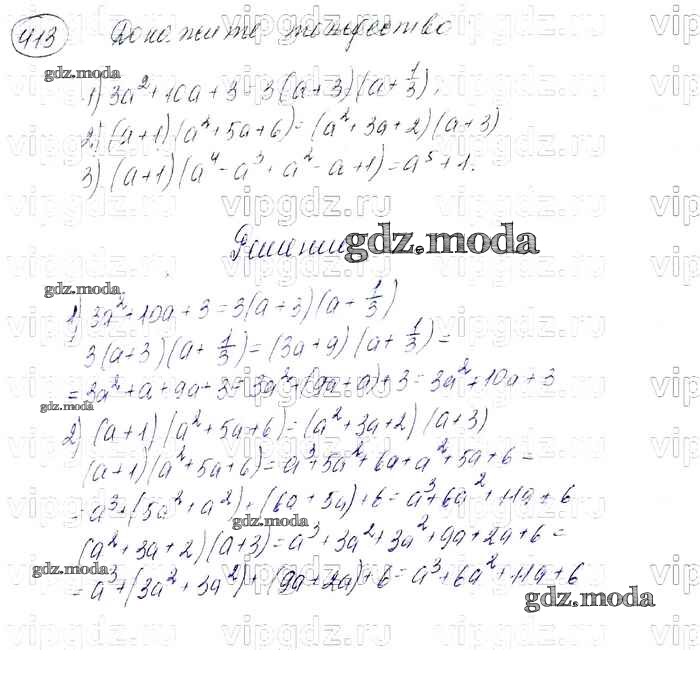 413 Докажите тождество
gdz.moda
1) 3a² + 10a + 3 = 3(a + 3)(a + 1/3);
2) (a + 1)(a² + 5a + 6) = (a² + 3a + 2)(a + 3)
3) (a + 1)(a⁴ - a³ + a² - a + 1) = a⁵ + 1.
Решение
gdz.moda
gdz.moda
1) 3a² + 10a + 3 = 3(a + 3)(a + 1/3)
3(a + 3)(a + 1/3) = (3a + 9)(a + 1/3) =
= 3a² + a + 9a + 3 = 3a² + (9a + a) + 3 = 3a² + 10a + 3
gdz.moda
2) (a + 1)(a² + 5a + 6) = (a² + 3a + 2)(a + 3)
(a + 1)(a² + 5a + 6) = a³ + 5a² + 6a + a² + 5a + 6 =
= a³ + (5a² + a²) + (6a + 5a) + 6 = a³ + 6a² + 11a + 6
gdz.moda
(a² + 3a + 2)(a + 3) = a³ + 3a² + 3a² + 9a + 2a + 6 =
gdz.moda
= a³ + (3a² + 3a²) + (9a + 2a) + 6 = a³ + 6a² + 11a + 6
gdz.moda
vipgdz.ru